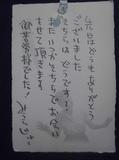 先日はどうもありがとう
ございました
そちらは どうですか?
またいつかそちらでお会い
させて頂きます
御苦労様でした!